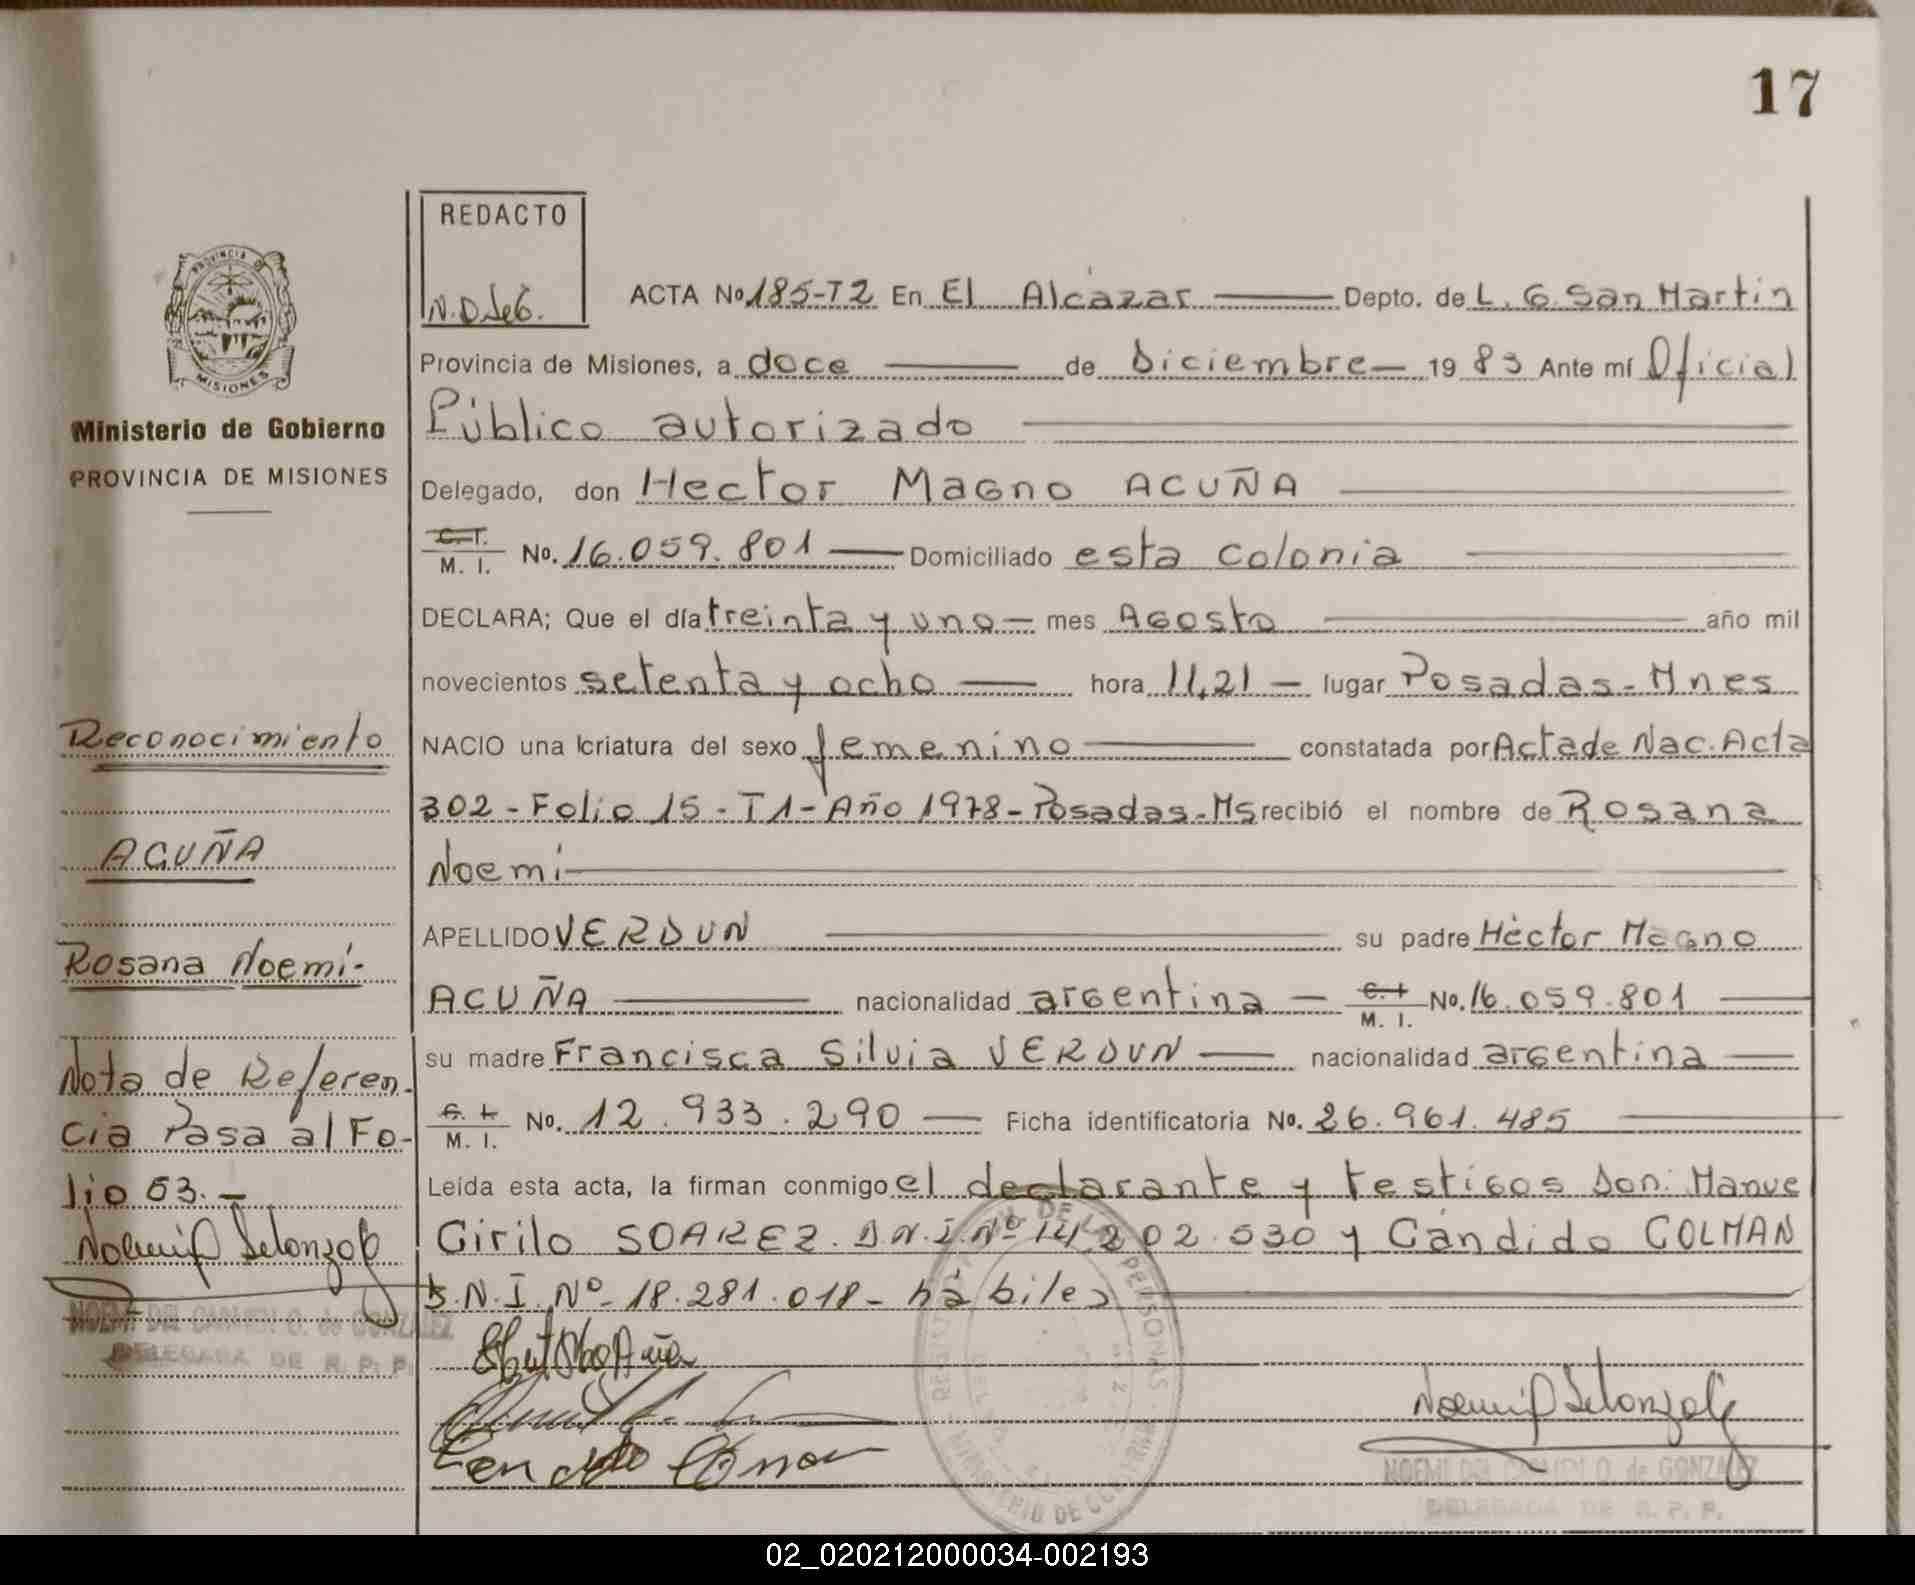 17
REDACTO
N.D de G.
ACTA No 185-T2 En El Alcázar Depto. de L. G. San Martin
Provincia de Misiones, a doce de Diciembre 19 83 Ante mí Oficial
Público autorizado
Delegado, don Hector Magno ACUÑA
C. I.
M. I. No. 16.059.801 Domiciliado esta colonia
DECLARA; Que el día treinta y uno mes Agosto año mil
novecientos setenta y ocho hora 11,21 lugar Posadas-Mnes
NACIO una criatura del sexo femenino constatada por Acta de Nac. Acta
302 - Folio 15 - T1 - Año 1978 - Posadas-Ms recibió el nombre de Rosana
Noemí
APELLIDO VERDUN su padre Héctor Magno
ACUÑA nacionalidad argentina C. I.
M. I. No. 16.059.801
su madre Francisca Silvia VERDUN nacionalidad argentina
C. I.
M. I. No. 12.933.290 Ficha identificatoria No. 26.961.485
Leída esta acta, la firman conmigo el declarante y testigos Don: Manue
Cirilo SOAREZ. D.N.I. Nº 14.202.530 y Cándido COLMAN
D.N.I. Nº 18.281.018 - hábiles
PROVINCIA D
MISIONES
Ministerio de Gobierno
PROVINCIA DE MISIONES
Reconocimiento
ACUÑA
Rosana Noemí-
Nota de Referen-
cia Pasa al Fo-
lio 53.-
NOEMI DEL CARMEN O. de GONZALEZ
DELEGADA DE R. P. P.
NOEMI DEL CARMEN O. de GONZALEZ
DELEGADA DE R. P. P.
02_020212000034-002193